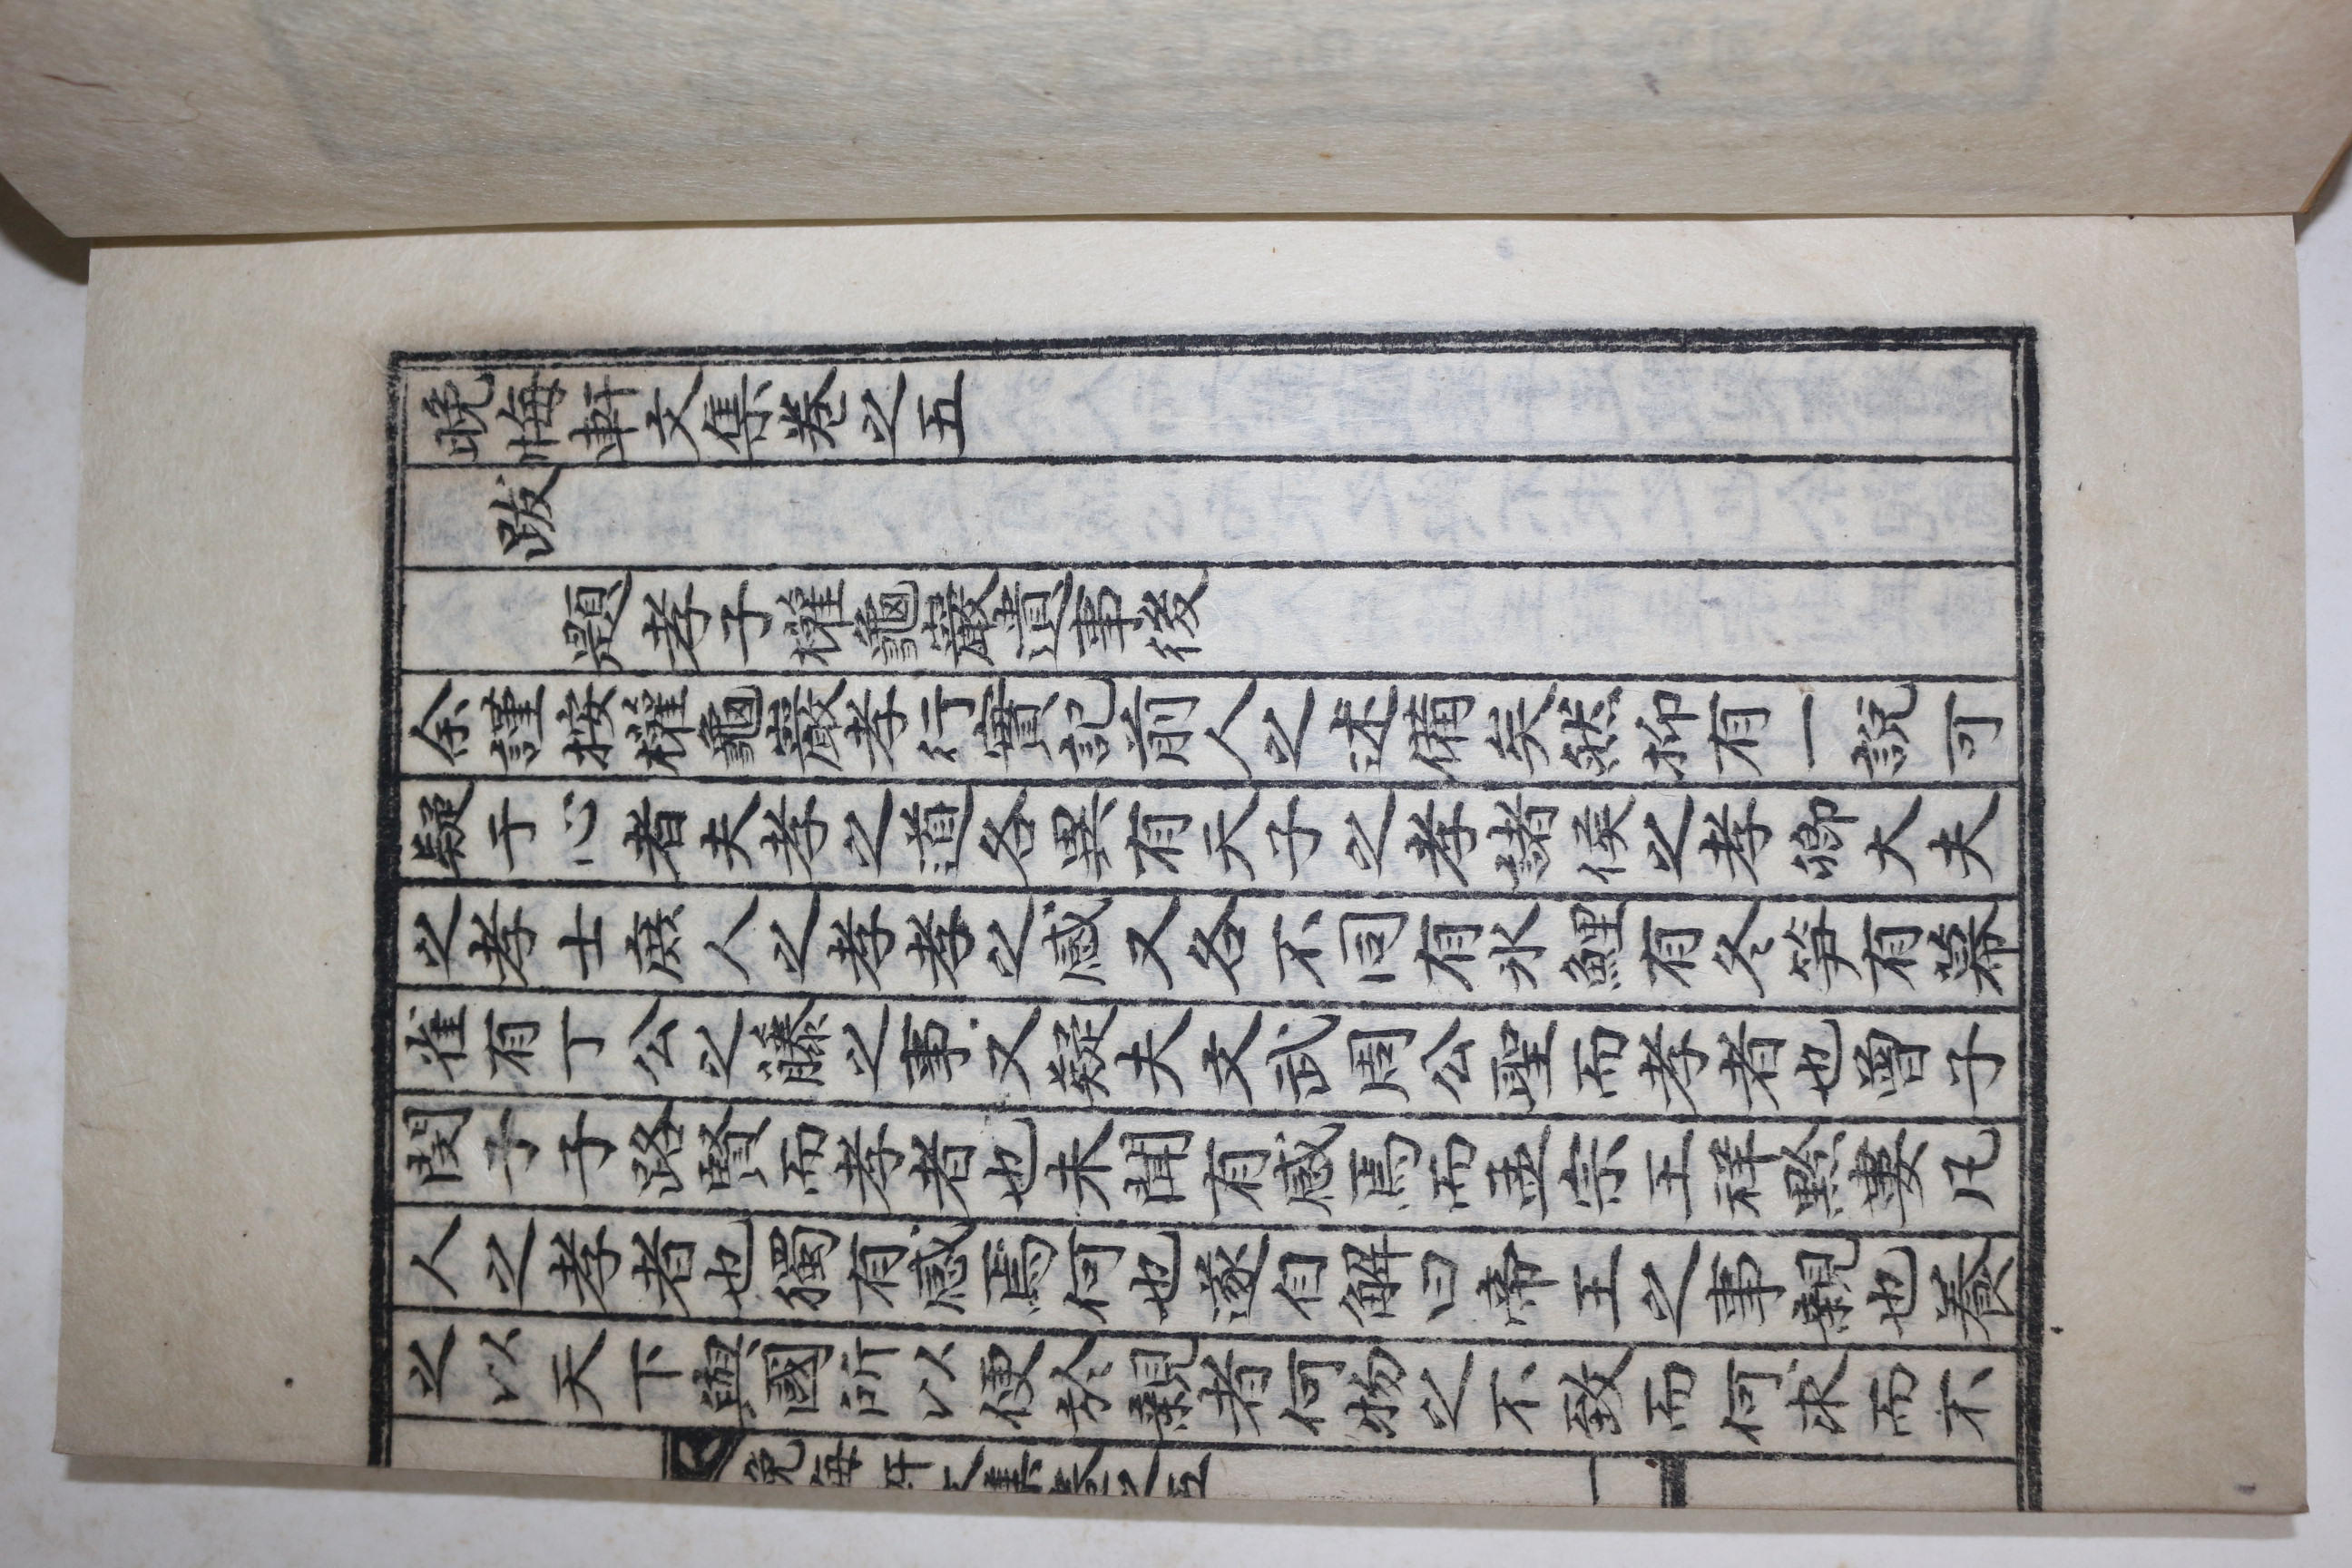 晩悔軒文集卷之五
跋
題孝子權龜巖遺事後
余謹按權龜巖孝行實記前人之述備矣然抑有一說可
疑于心者夫孝之道各異有天子之孝諸侯之孝卿大夫
之孝士庶人之孝孝之感又各不同有氷鯉有冬笋有幕
雀有丁公之藤之事又疑夫文武周公聖而孝者也曾子
閔子子路賢而孝者也未聞有感焉而孟宗王祥黔婁凡
人之孝者也獨有感焉何也遂自解曰帝王之事親也養
之以天下與國所以便於親者何物之不致而何求而不
晩悔軒文集卷之五 一